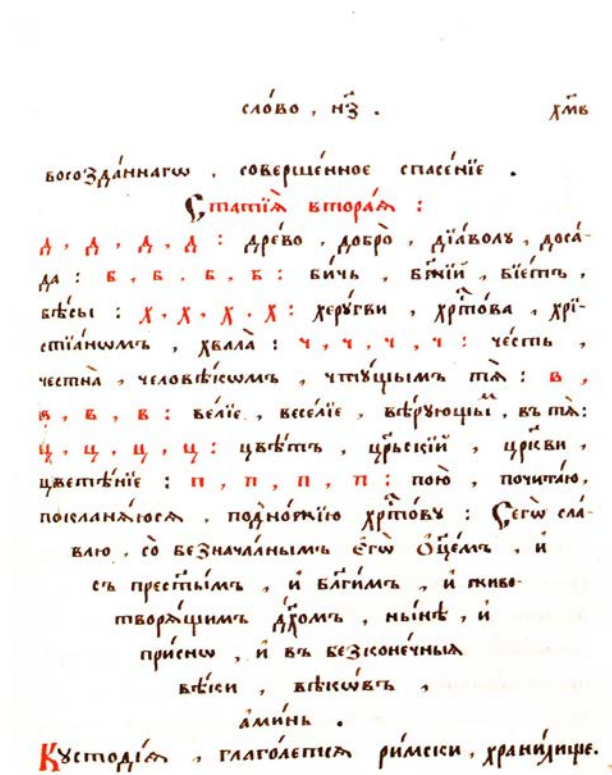 сло́во , н҃з . хм҃в
восозда́ннагѡ , соверше́нное спасе́нїе .
Статїѧ̀ втора́ѧ :
д , д , д , д : дре́во , добро̀ , дїа́волу , доса́-
да : б , б , б , б : би́чь , бж҃їй , бїе́тъ ,
бѣ́сы : х , х , х , х : херу́гви , хрⷭ҇то́ва , хрї-
стїа́нѡмъ , хвала̀ : ч , ч , ч , ч : че́сть ,
честна̀ , человѣ́кѡмъ , чту́щымъ тѧ̀ : в ,
в , в , в : ве́лїе , весе́лїе , вѣ́рующыⷨ , въ тѧ̀ :
ц , ц , ц , ц : цвѣ́тъ , цр҃ьскїй , цр҃кви ,
цвете́нїе : п , п , п , п : пою̀ , почита́ю ,
покланѧ́юсѧ , подно́жїю хрⷭ҇то́ву : Сегѡ̀ сла́-
влю , со̀ безнача́лнымъ є҆гѡ̀ ѻ҆ц҃е́мъ , и҆
съ прест҃ы́мъ , и҆ бл҃ги́мъ , и҆ живо-
творѧ́щимъ дх҃омъ , ны́нѣ , и҆
при́снѡ , и҆ въ безконе́чныѧ
вѣ́ки , вѣкѡ́въ ,
а҆ми́нь .
Кусто́дїѧ , глаго́летсѧ ри́мски , храни́лище .